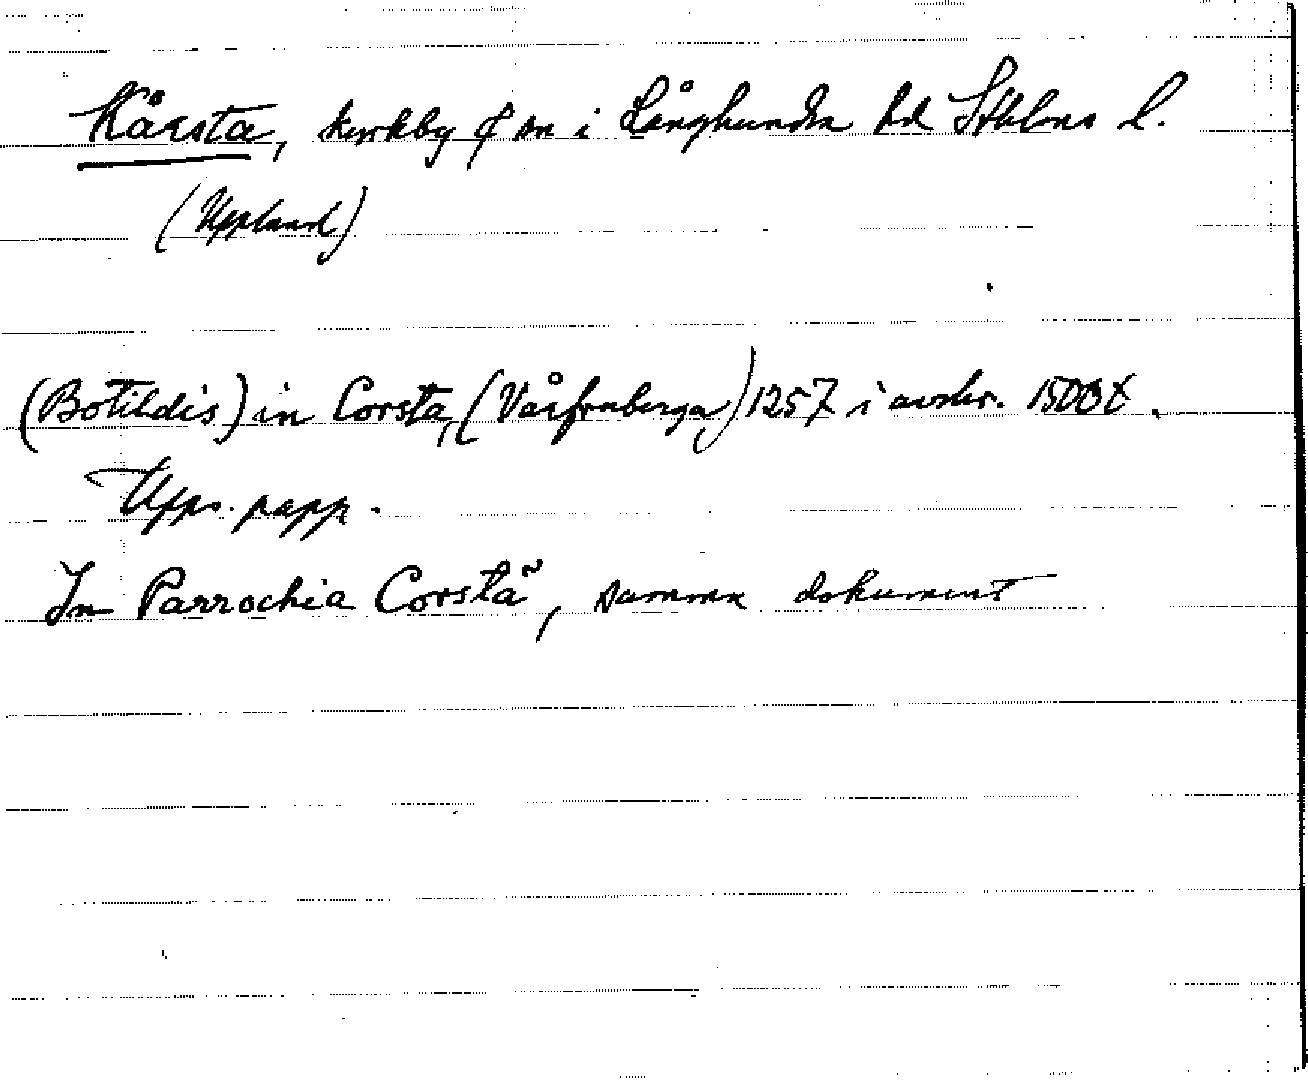 Kårsta, kyrkby & sn i Långhundra hd Sthlms l.
(Uppland)
(Botildis) in Corsta, (Vårfruberga) 1257 i avskr. 1500t.
Upps. papp.
In Parrochia Corstã, samma dokument